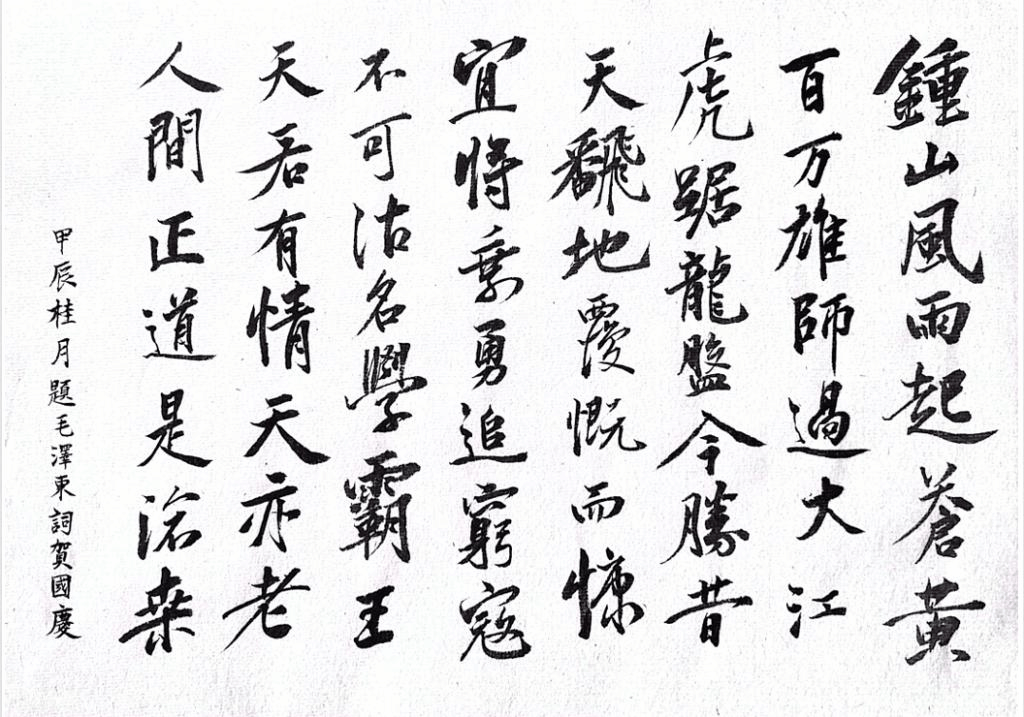 鍾山風雨起蒼黃
百万雄師過大江
虎踞龍盤今勝昔
天飜地覆慨而慷
宜將乘勇追窮寇
不可沽名學霸王
天若有情天亦老
人間正道是滄桒
甲辰桂月題毛澤東詞賀國慶